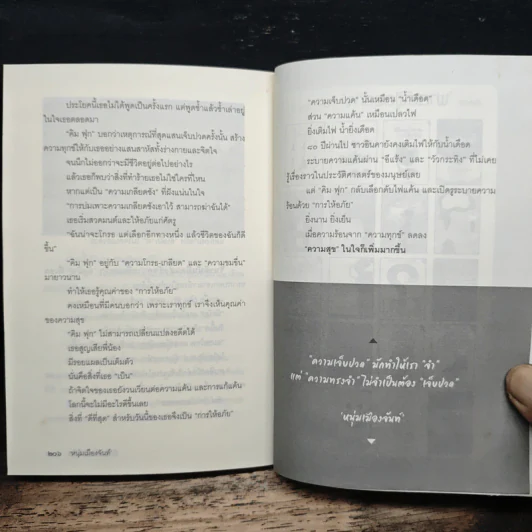 ประโยคนี้เธอไม่ได้พูดเป็นครั้งแรก แต่พูดซ้ำแล้วซ้ำเล่าอยู่
ในใจเธอตลอดมา
"คิม ฟุก" บอกว่าเหตุการณ์ที่สุดแสนเจ็บปวดครั้งนั้น สร้าง
ความทุกข์ให้กับเธออย่างแสนสาหัสทั้งร่างกายและจิตใจ
จนนึกไม่ออกว่าจะมีชีวิตอยู่ต่อไปอย่างไร
แล้วเธอก็พบว่าสิ่งที่ทำร้ายเธอไม่ใช่ใครที่ไหน
หากแต่เป็น "ความเกลียดชัง" ที่ฝังแน่นในใจ
"การบ่มเพาะความเกลียดชังเอาไว้ สามารถฆ่าฉันได้"
เธอเริ่มสวดมนต์และให้อภัยแก่ศัตรู
"ฉันน่าจะโกรธ แต่เลือกอีกทางหนึ่ง แล้วชีวิตของฉันก็ดี
ขึ้น"
"คิม ฟุก" อยู่กับ "ความโกรธ-เกลียด" และ "ความขมขื่น"
มายาวนาน
ทำให้เธอรู้คุณค่าของ "การให้อภัย"
คงเหมือนที่มีคนบอกว่า เพราะเราทุกข์ เราจึงเห็นคุณค่า
ของความสุข
"คิม ฟุก" ไม่สามารถเปลี่ยนแปลงอดีตได้
เธอสูญเสียพี่น้อง
มีรอยแผลเป็นเต็มตัว
นั่นคือสิ่งที่เธอ "เป็น"
ถ้าจิตใจของเธอยังวนเวียนต่อความแค้น และการแก้แค้น
โลกนี้จะไม่มีอะไรดีขึ้นเลย
สิ่งที่ "ดีที่สุด" สำหรับวันนี้ของเธอจึงเป็น "การให้อภัย"
๒๐๖ หนุ่มเมืองจันท์
"ความเจ็บปวด" นั้นเหมือน "น้ำเดือด"
ส่วน "ความแค้น" เหมือนเปลวไฟ
ยิ่งเติมไฟ น้ำยิ่งเดือด
๘๐ ปีผ่านไป ชาวฮินดายังคงเติมไฟให้กับน้ำเดือด
ระบายความแค้นผ่าน "อีแร้ง" และ "วัวกระทิง" ที่ไม่เคย
รู้เรื่องราวในประวัติศาสตร์ของมนุษย์เลย
แต่ "คิม ฟุก" กลับเลือกดับไฟแค้น และเปิดรูระบายความ
ร้อนด้วย "การให้อภัย"
ยิ่งนาน ยิ่งเย็น
เมื่อความร้อนจาก "ความทุกข์" ลดลง
"ความสุข" ในใจก็เพิ่มมากขึ้น
"ความเจ็บปวด" มักทำให้เรา "จำ"
แต่ "ความทรงจำ" ไม่จำเป็นต้อง "เจ็บปวด"
"หนุ่มเมืองจันท์"